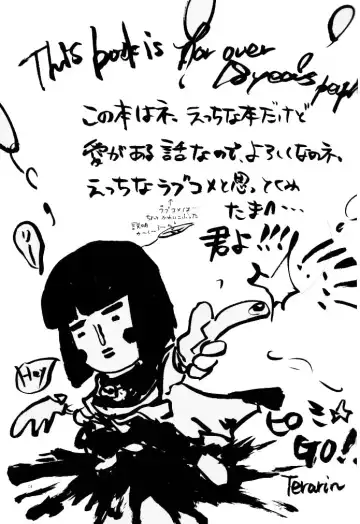 This book is for over
18 years people
この本はネ、えっちな本だけど
愛がある話なので、よろしくなのネ。
えっちなラブコメと思ってくれ
たまへ…
君よ!!!
ラブコメは
Hey
ヒロミ☆
GO!!
Terarin